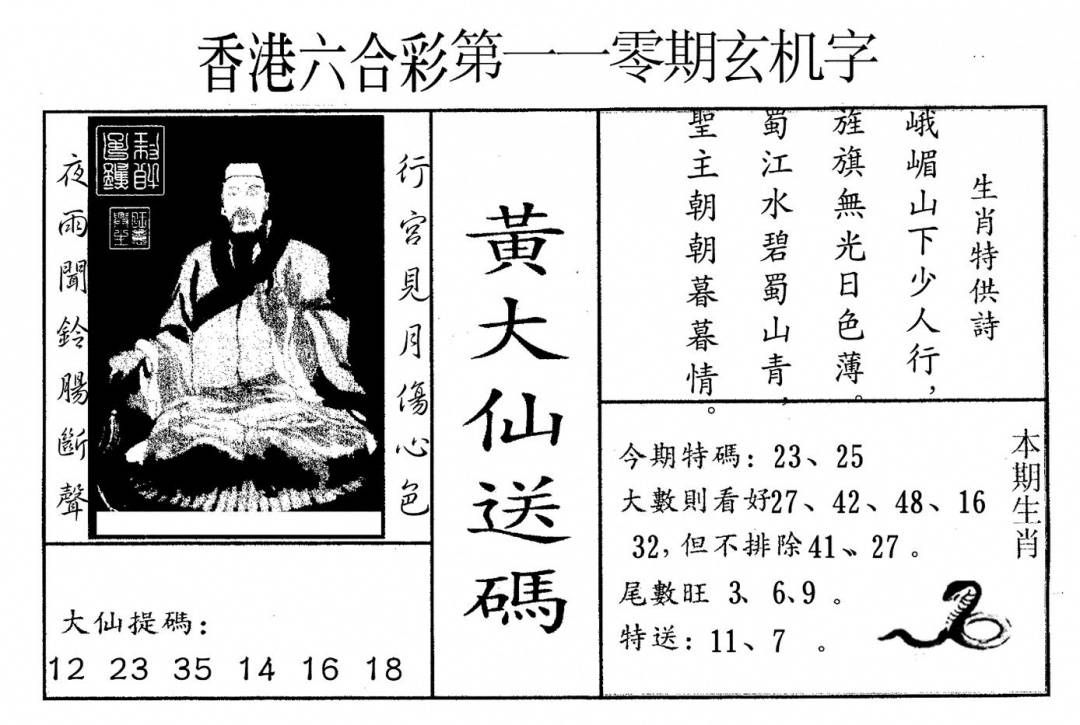 香港六合彩第一一零期玄机字
行宮見月傷心色
夜雨聞鈴腸斷聲
大仙提碼：
12 23 35 14 16 18
黃大仙送碼
生肖特供詩
峨嵋山下少人行，
旌旗無光日色薄。
蜀江水碧蜀山青，
聖主朝朝暮暮情。
本期生肖
今期特碼：23、25
大數則看好27、42、48、16
32，但不排除41、27。
尾數旺 3、6、9 。
特送：11、7 。